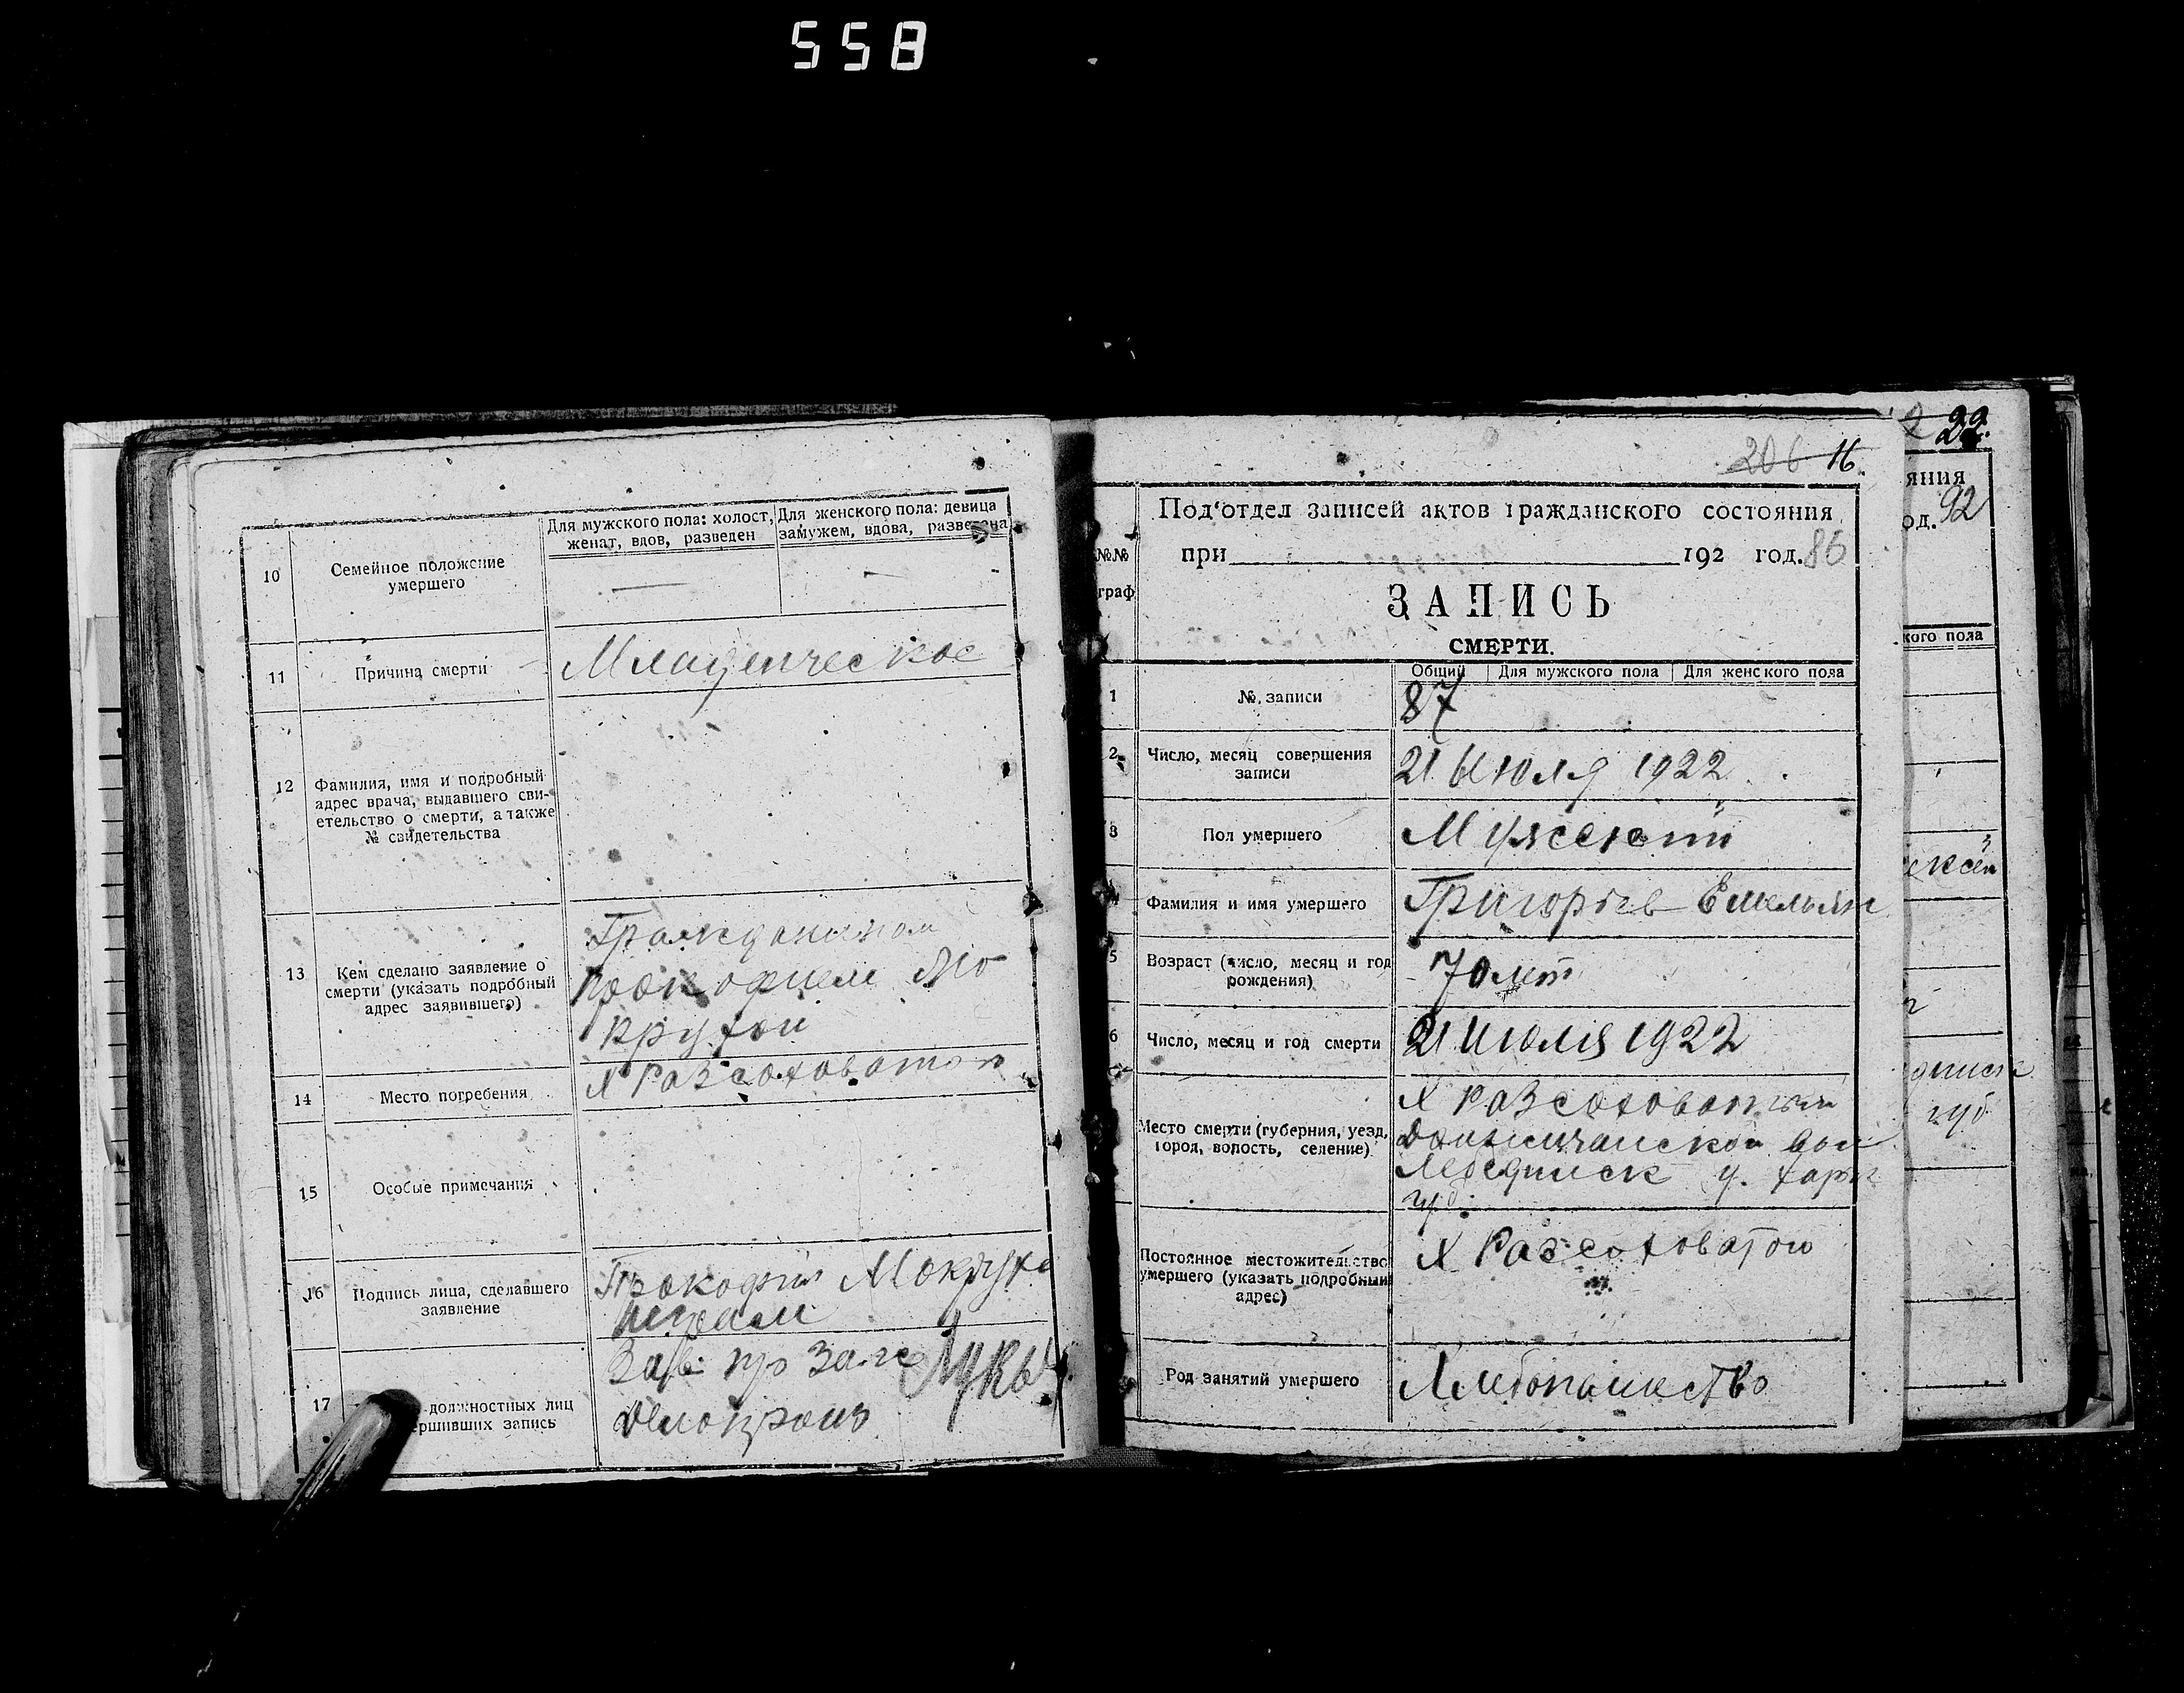 558
10
Семейное положение
умершего
Для мужского пола: холост,
женат, вдов, разведен
Для женского пола: девица
замужем, вдова, разведена
—
—
11
Причина смерти
Младенческое
12
Фамилия, имя и подробный
адрес врача, выдавшего сви-
етельство о смерти, а также
№ свидетельства
13
Кем сделано заявление о
смерти (указать подробный
адрес заявившего)
Гражданином
Прокофием Мо
крухой
14
Место погребения
Х Разсоховатой
15
Особые примечания
16
Подпись лица, сделавшего
заявление
Прокофий Мокруха
17
должностных лиц
ершивших запись
Зав.
Делопроиз
206 16.
Под'отдел записей актов гражданского состояния
при 192 год. 86
№№
граф
ЗАПИСЬ
СМЕРТИ.
Общий
Для мужского пола
Для женского пола
1
№ записи
87
2
Число, месяц совершения
записи
21 Июля 1922
3
Пол умершего
Мужской
Фамилия и имя умершего
Григорьев Емельян
5
Возраст (число, месяц и год
рождения)
70 лет
6
Число, месяц и год смерти
21 июля 1922
Место смерти (губерния, уезд,
город, волость, селение)
Х Разсоховатый
Лебединск у. Харьк
губ.
Постоянное местожительство
умершего (указать подробный
адрес)
Х Разсоховатой
Род занятий умершего
Хлебопашество
22.
яния
од. 92
кого пола
губ